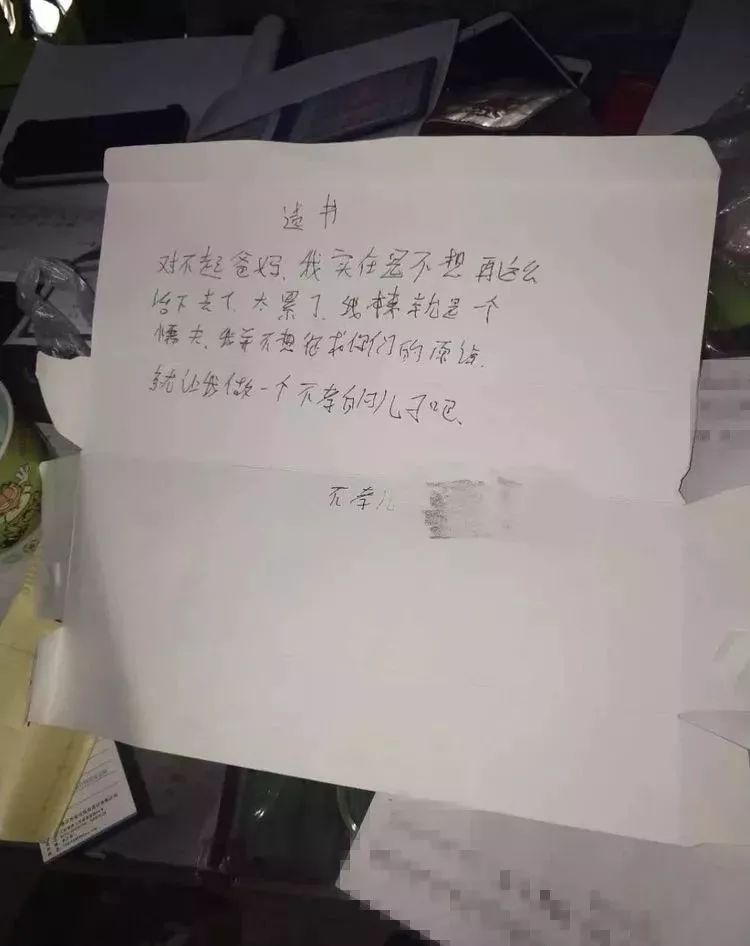 遗书
对不起爸妈、我实在是不想再这么
活下去了、太累了、我本来就是一个
懦夫、我并不想征求你们的原谅.
就让我做一个不孝的儿子吧、
不孝儿